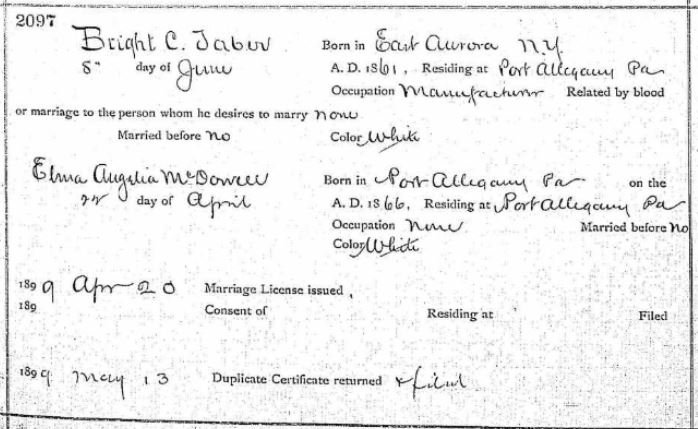 2097
Bright C. Tabor Born in East Aurora N.Y.
8" day of June A. D. 1861, Residing at Port Allegany Pa
Occupation Manufacturer Related by blood
or marriage to the person whom he desires to marry none
Married before no Color White
Elma Angelia McDowell Born in Port Allegany Pa on the
day of April A. D. 1866, Residing at Port Allegany Pa
Occupation None Married before no
Color White
1899 Apr 20 Marriage License issued,
189 Consent of Residing at Filed
1899 May 13 Duplicate Certificate returned & filed